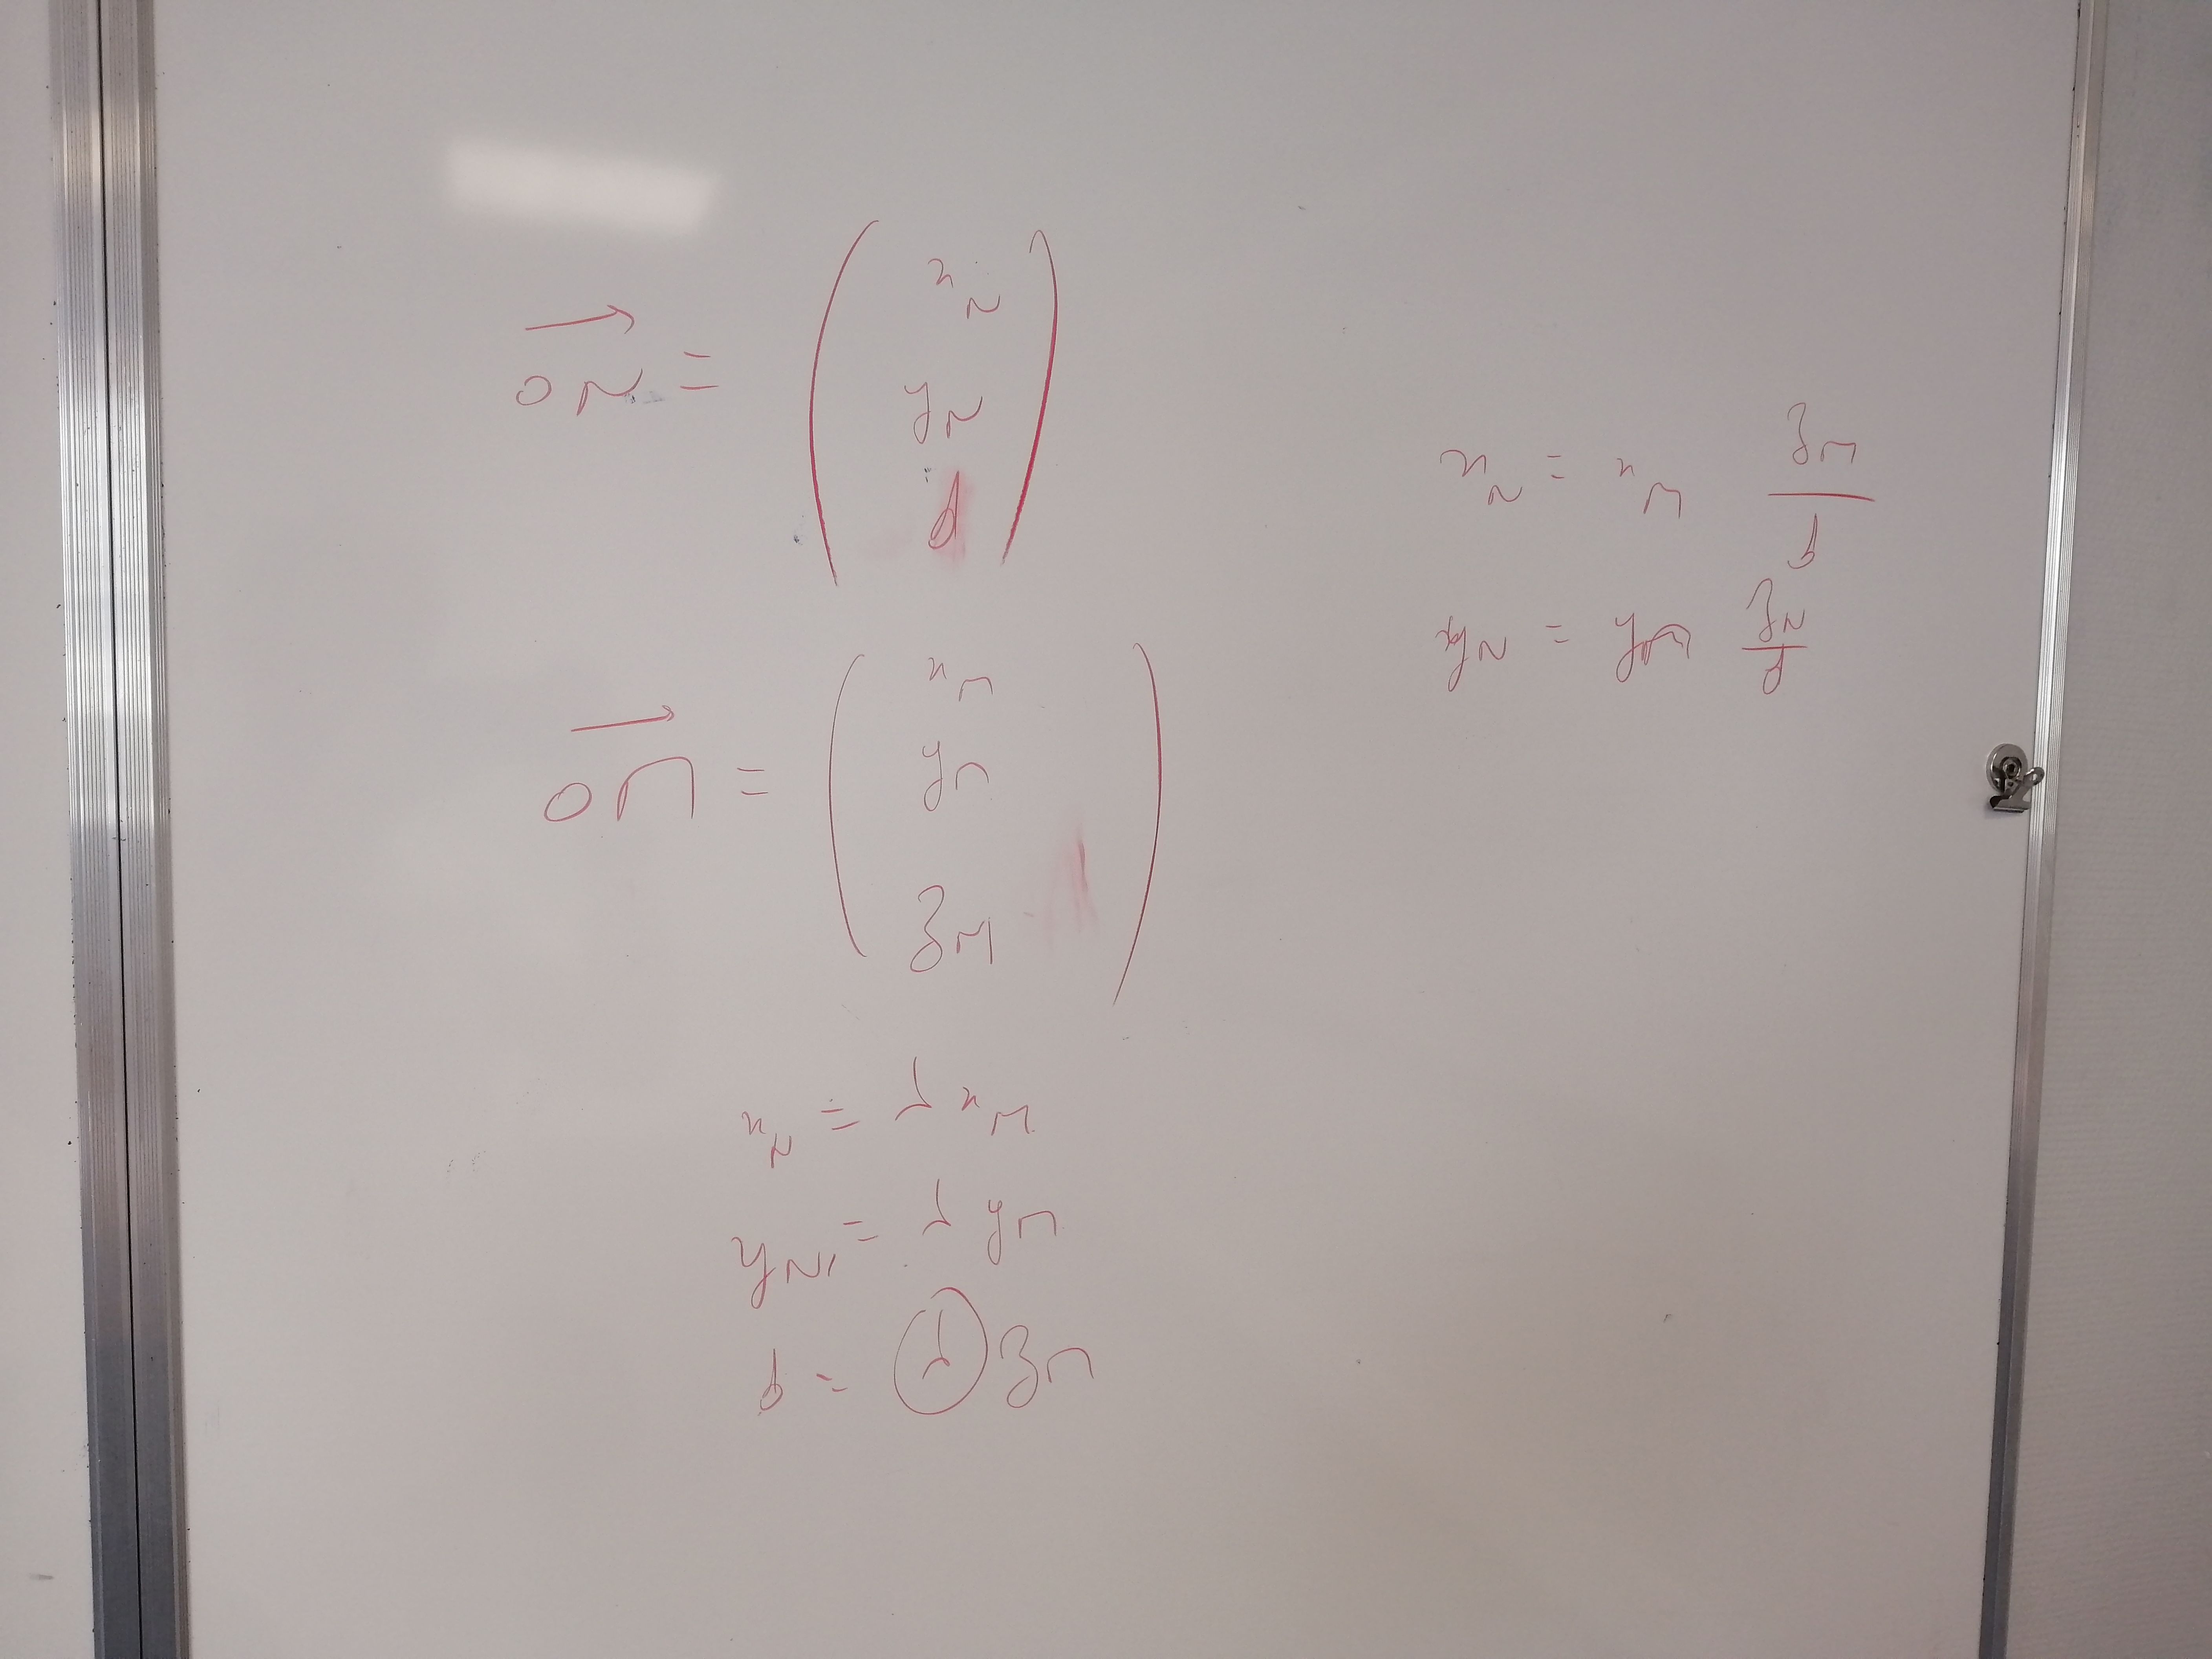 \overrightarrow{ON} = \begin{pmatrix} x_N \\ y_N \\ d \end{pmatrix}
\overrightarrow{OM} = \begin{pmatrix} x_M \\ y_M \\ z_M \end{pmatrix}
x_N = λ x_M
y_N = λ y_M
d = λ z_M
x_N = x_M \frac{z_M}{d}
y_N = y_M \frac{z_N}{d}